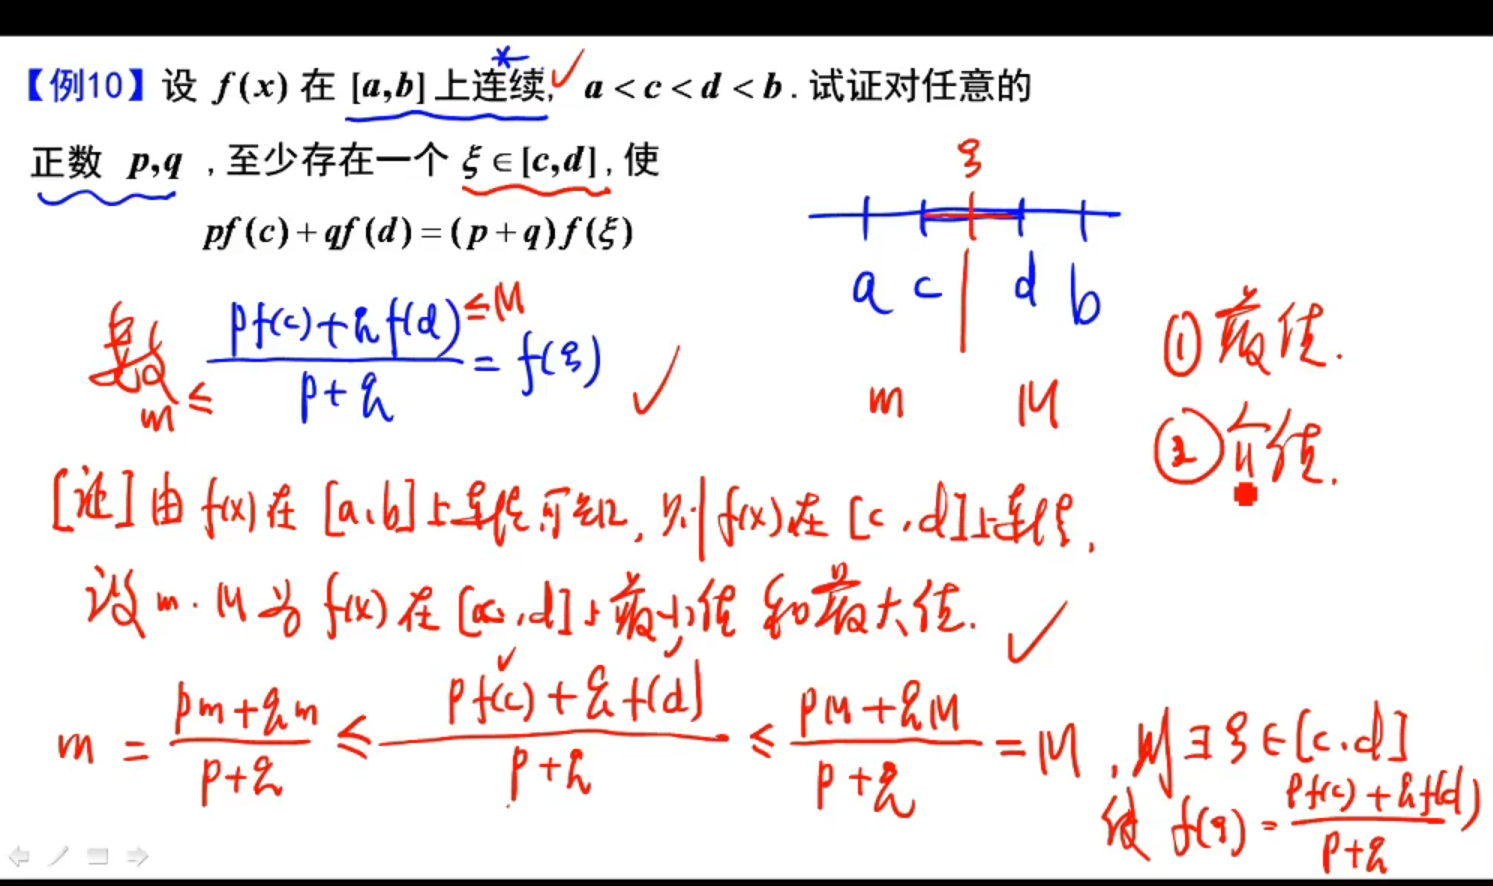 【例10】设 f(x) 在 [a,b] 上连续, a < c < d < b . 试证对任意的
正数 p,q , 至少存在一个 ξ ∈ [c,d] , 使
pf(c) + qf(d) = (p + q)f(ξ)
数 m ≤ (pf(c)+qf(d))/(p+q) ≤ M = f(ξ)
ξ
a c d b
m M
① 最值.
② 介值.
[证] 由 f(x) 在 [a,b] 上连续可知, 则 f(x) 在 [c,d] 上连续.
设 m. M 为 f(x) 在 [c,d] 上最小值和最大值.
m = (pm+qm)/(p+q) ≤ (pf(c)+qf(d))/(p+q) ≤ (pM+qM)/(p+q) = M , 则 ∃ ξ ∈ [c.d]
使 f(ξ) = (pf(c)+qf(d))/(p+q)